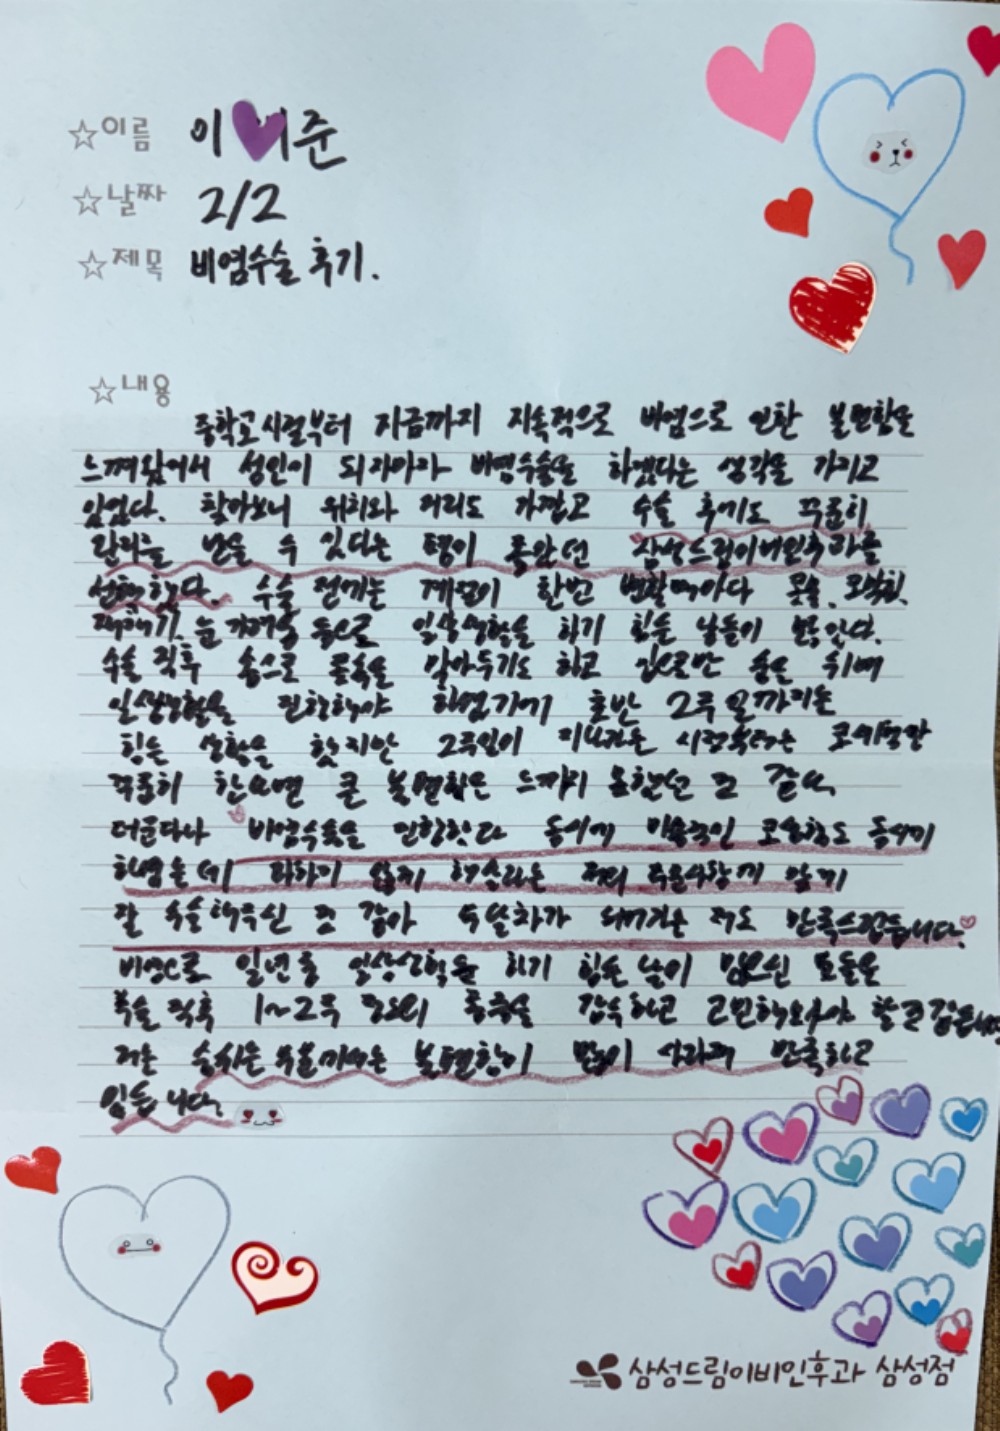 ☆이름 이 준
☆날짜 2/2
☆제목 비염수술 후기.
☆내용
중학교 시절부터 지금까지 지속적으로 비염으로 인한 불편함을
느껴왔어서 성인이 되자마자 비염수술을 하겠다는 생각을 가지고
있었다. 찾아보니 위치와 거리도 가깝고 수술 후에도 꾸준히
받을 수 있다는 점이 삼성드림이비인후과를
선택했다. 수술 전에는 계절이 한번 변할때마다 콧물, 코막힘,
재채기, 눈 가려움 등으로 일상생활을 하기 힘든 날들이 많았다.
수술 직후 솜으로 콧속을 막아두기도 하고 입으로만 숨을 쉬며
일상생활을 진행해야 하였기에 초반 2주일까지는
힘든 생활을 했지만 2주일이 지나가는 시점부터는 코세척만
꾸준히 한다면 큰 불편함은 느끼지 못했던 것 같다.
더군다나 비염수술을 진행함과 동시에 미용적인 코성형도 동시에
하였는데 과하지 않게 해달라는 저의 요구사항에 맞게
잘 수술해주신 것 같아 수술차가 되어가는 저도 만족스럽습니다.
비염으로 일년 중 일상생활을 하기 힘든 날이 많으신 분들은
수술 직후 1~2주 정도의 통증을 감수하고 고민해보셔야 할 것 같습니다
저는 수술 불편함이 많이 사라져 만족하고
있습니다.
삼성드림이비인후과 삼성점